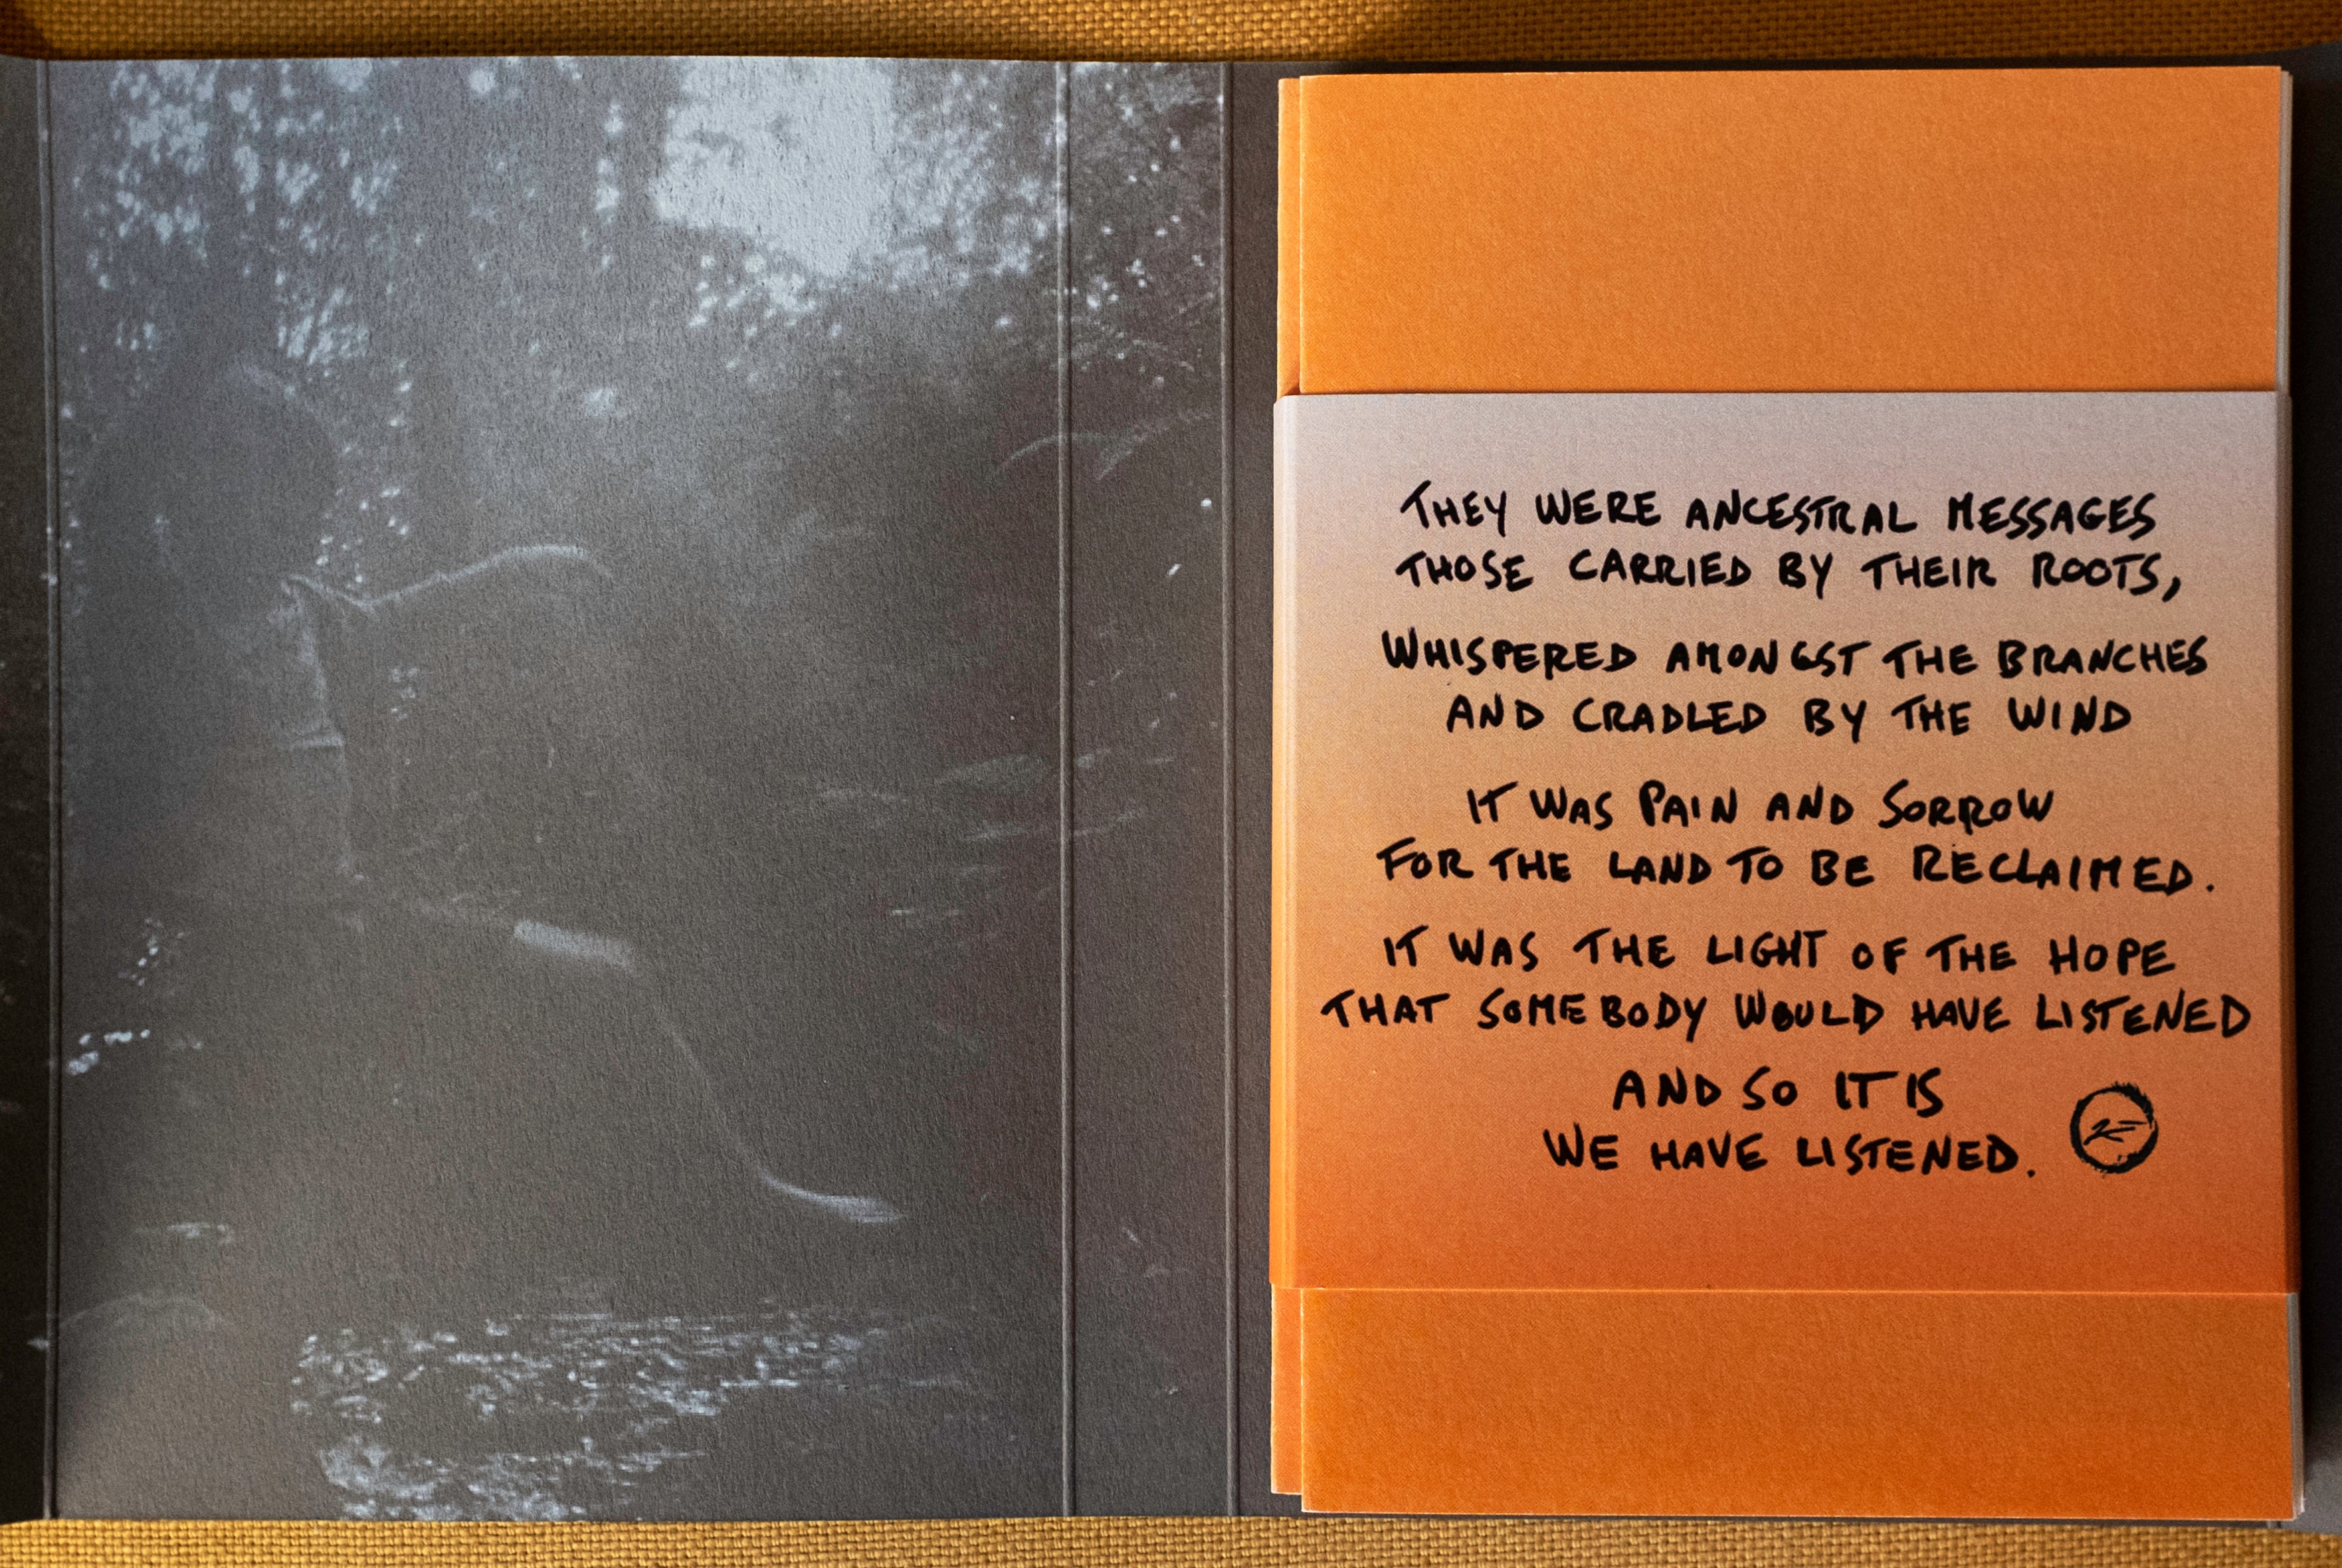 THEY WERE ANCESTRAL MESSAGES
THOSE CARRIED BY THEIR ROOTS,
WHISPERED AMONGST THE BRANCHES
AND CRADLED BY THE WIND
IT WAS PAIN AND SORROW
FOR THE LAND TO BE RECLAIMED.
IT WAS THE LIGHT OF THE HOPE
THAT SOMEBODY WOULD HAVE LISTENED
AND SO IT IS
WE HAVE LISTENED.